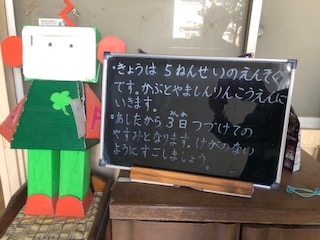 ・きょうは 5ねんせいのえんそく
です。かぶとやましんりんこうえんに
いきます。
・あしたから 3日 つづけての
みっか
やすみとなります。けがのない
ようにすごしましょう。